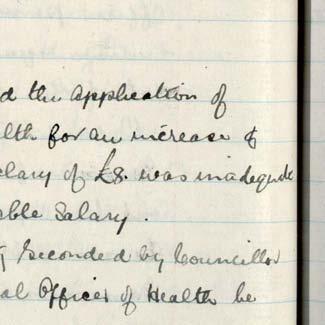 d the application of
lth for an increase of
alary of £8. was inadequate
able Salary.
g seconded by Councillor
al Officer of Health be